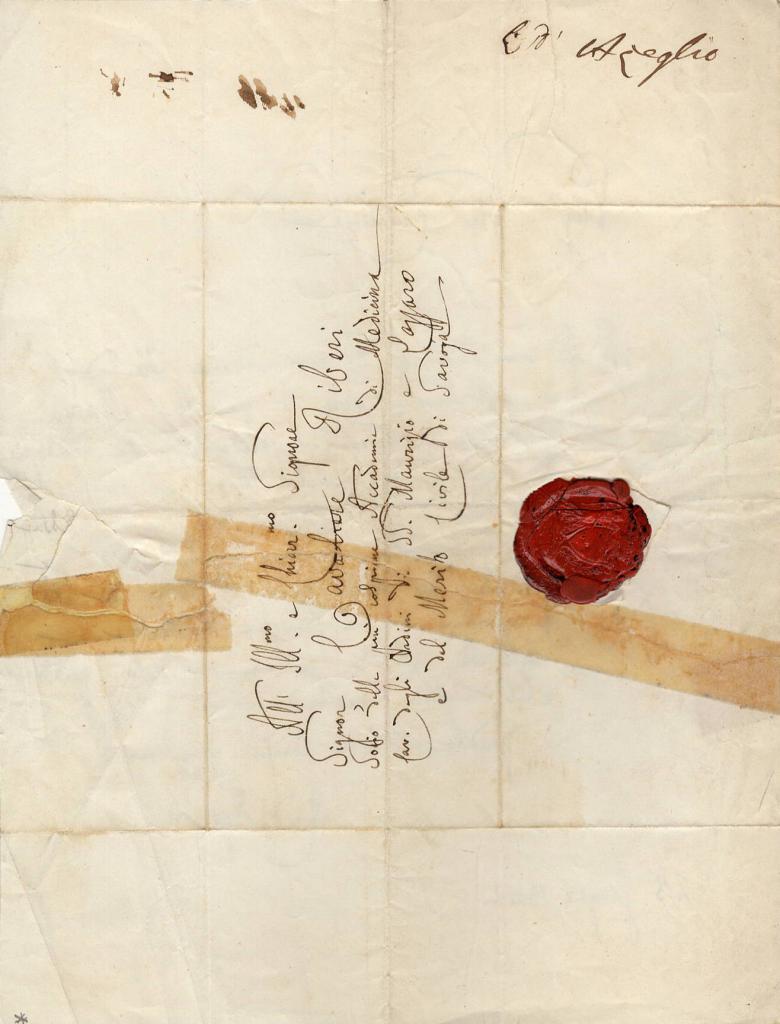 E d' Azeglio
All' Ill.mo e Chiar.mo Signore
Signor Cavaliere Riberi
Socio delle più Accademie di Medicina
Cav. degli Ordini di SS. Maurizio e Lazzaro
e del Merito Civile di Savoja